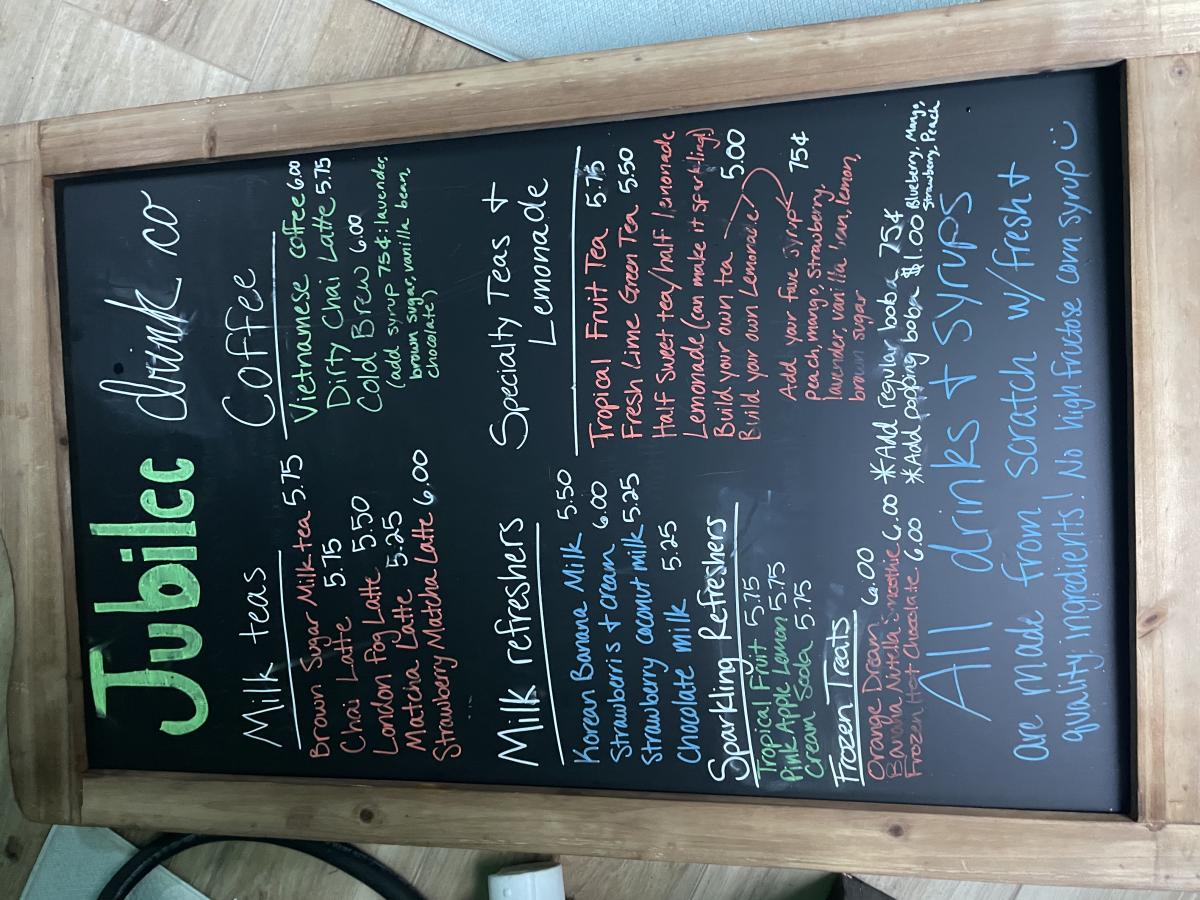 Jubilee drink co
Milk teas
Brown Sugar Milk tea 5.75
Chai Latte 5.75
London Fog Latte 5.50
Matcha Latte 5.25
Strawberry Matcha Latte 6.00
Coffee
Vietnamese coffee 6.00
Dirty Chai Latte 5.75
Cold Brew 6.00
(add syrup 75¢: lavender,
brown sugar, vanilla bean,
chocolate)
Milk refreshers
Korean Banana Milk 5.50
Strawberris + cream 6.00
Strawberry coconut milk 5.25
Chocolate milk 5.25
Specialty Teas +
Lemonade
Tropical Fruit Tea 5.75
Fresh Lime Green Tea 5.50
Half Sweet tea/half lemonade
Lemonade (can make it sparkling!)
Build your own tea 5.00
Build your own Lemonade
Add your fave syrup 75¢
peach, mango, strawberry,
lavender, vanilla bean, lemon,
brown sugar
Sparkling Refreshers
Tropical Fruit 5.75
Pink Apple Lemon 5.75
Cream Soda 5.75
Frozen Treats
Orange Dream 6.00
Banana Nutella smoothie 6.00
Frozen Hot Chocolate 6.00
*Add regular boba 75¢
*Add popping boba $1.00 Blueberry, Mango,
Strawberry, Peach
All drinks + syrups
are made from scratch w/fresh +
quality ingredients! No high fructose corn syrup